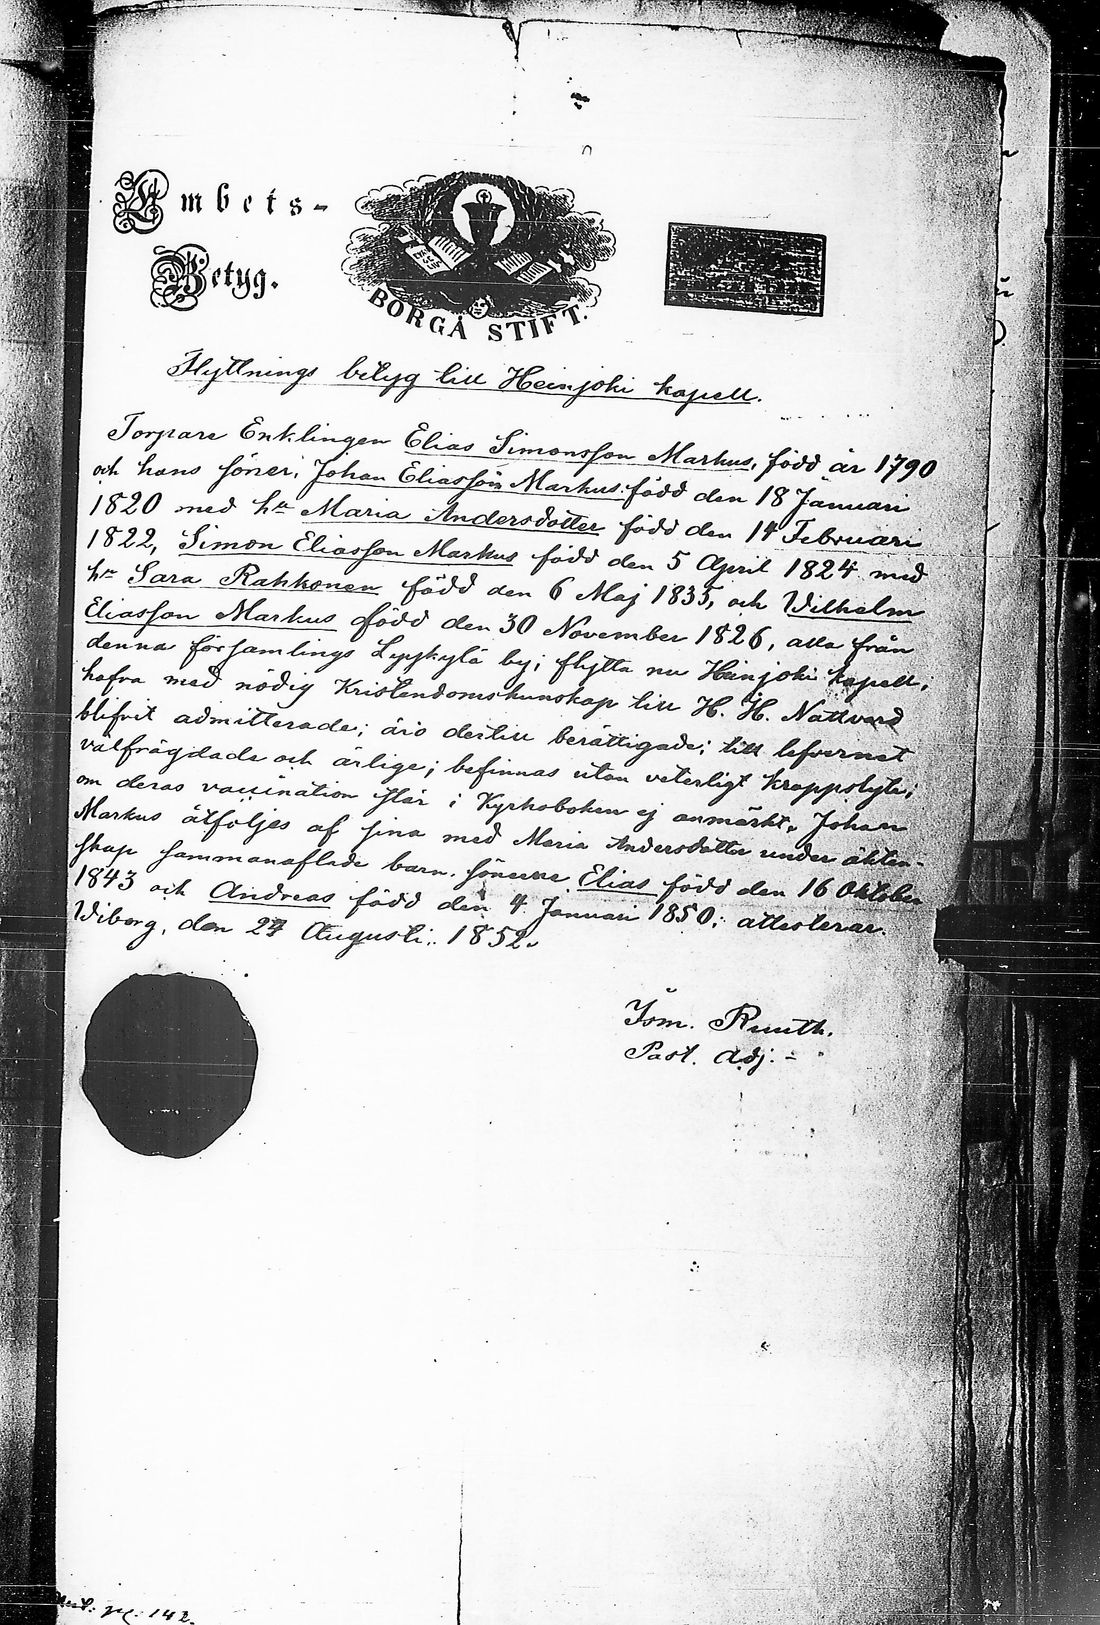 Embets-
Betyg.
BORGÅ STIFT.
Flyttnings betyg till Heinjoki kapell.
Torpare Enklingen Elias Simonsson Markus, född år 1790
och hans söner; Johan Eliasson Markus född den 18 Januari
1820 med h:u Maria Andersdotter född den 14 Februari
1822, Simon Eliasson Markus född den 5 April 1824 med
h:u Sara Rahkonen född den 6 Maj 1835, och Wilhelm
Eliasson Markus född den 30 November 1826, alla från
denna församlings Lypykylä by; flytta nu Heinjoki kapell;
hafva med nödig Kristendomskunskap till H. H. Nattvard
blifvit admitterade; äro dertill berättigade; till lefvernet
välfrägdade och ärlige; befinnas utan veterligt kroppslyte;
om deras vaccination står i Kyrkoboken ej anmärkt. Johan
Markus åtföljes af sina med Maria Andersdotter under äkten-
skap sammanaflede barn. sönerne Elias född den 16 Oktober
1843 och Andreas född den 4 Januari 1850; attesterar.
Wiborg, den 27 Augusti. 1852.
Ism. Ruuth.
Past. adj.
142.